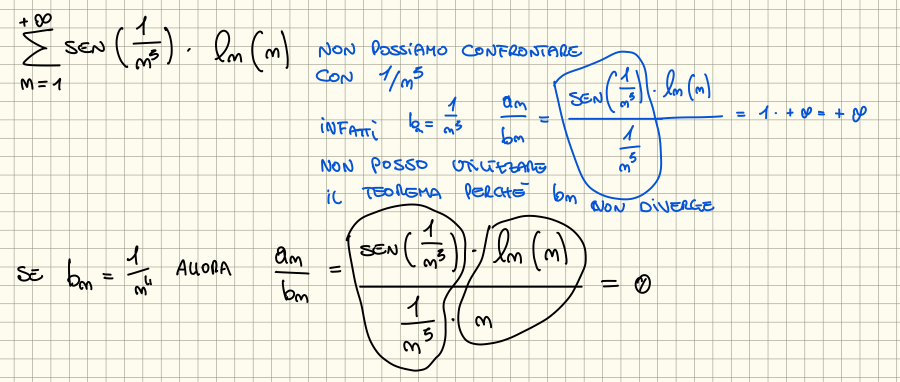 +∞
∑ SEN (1/n⁵) · ln (n)
n=1
NON POSSIAMO CONFRONTARE
CON 1/n⁵
INFATTI bn = 1/n⁵ an/bn = SEN(1/n⁵) · ln(n) / 1/n⁵ = 1 · +∞ = +∞
NON POSSO UTILIZZARE
IL TEOREMA PERCHÉ bn NON DIVERGE
SE bn = 1/n⁴ ALLORA an/bn = SEN(1/n⁵) · ln(n) / 1/n⁵ · n = 0